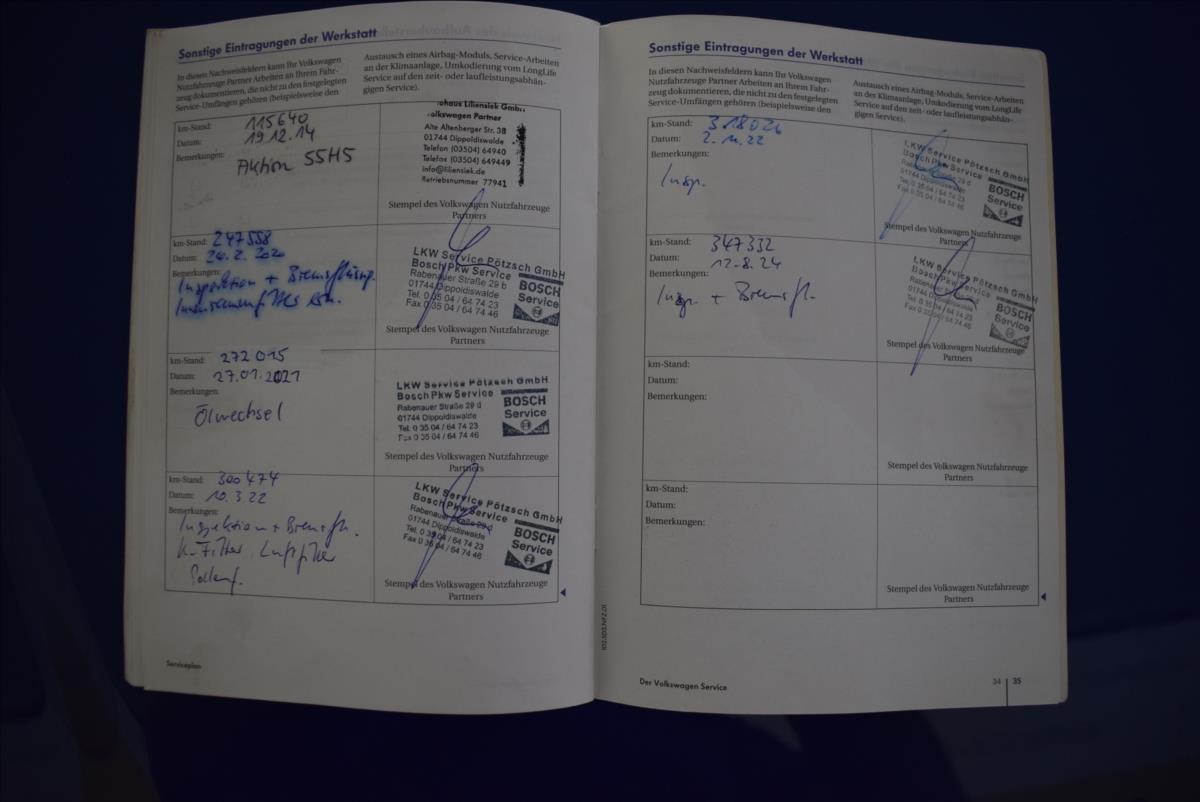 Sonstige Eintragungen der Werkstatt
In diesen Nachweisfeldern kann Ihr Volkswagen
Nutzfahrzeuge Partner Arbeiten an Ihrem Fahr-
zeug dokumentieren, die nicht zu den festgelegten
Service-Umfängen gehören (beispielsweise den
Austausch eines Airbag-Moduls, Service-Arbeiten
an der Klimaanlage, Umkodierung vom LongLife
Service auf den zeit- oder laufleistungsabhän-
gigen Service).
km-Stand: 115640
Datum: 19.12.14
Bemerkungen:
Aktion 55H5
ohaus Liliensiek GmbH
olkswagen Partner
Alte Altenberger Str. 38
01744 Dippoldiswalde
Telefon (03504) 64940
Telefax (03504) 649449
info@liliensiek.de
Betriebsnummer 77941
Stempel des Volkswagen Nutzfahrzeuge
Partners
km-Stand: 247558
Datum: 24.2.2020
Bemerkungen:
Inspektion + Bremsflüssig.
LKW Service Pötzsch GmbH
Bosch Pkw Service
Rabenauer Straße 29 b
01744 Dippoldiswalde
Tel. 0 35 04 / 64 74 23
Fax 0 35 04 / 64 74 46
BOSCH
Service
Stempel des Volkswagen Nutzfahrzeuge
Partners
km-Stand: 272 015
Datum: 27.01.2021
Bemerkungen:
Ölwechsel
LKW Service Pötzsch GmbH
Bosch Pkw Service
Rabenauer Straße 29 d
01744 Dippoldiswalde
Tel. 0 35 04 / 64 74 23
Fax 0 35 04 / 64 74 46
BOSCH
Service
Stempel des Volkswagen Nutzfahrzeuge
Partners
km-Stand: 300474
Datum: 10.3.22
Bemerkungen:
Inspektion + Bremsfl.
K-Filter, Luftfilter
Pollenf.
LKW Service Pötzsch GmbH
Bosch Pkw Service
Rabenauer Straße 29 d
01744 Dippoldiswalde
Tel. 0 35 04 / 64 74 23
Fax 0 35 04 / 64 74 46
BOSCH
Service
Stempel des Volkswagen Nutzfahrzeuge
Partners
Serviceplan
Sonstige Eintragungen der Werkstatt
In diesen Nachweisfeldern kann Ihr Volkswagen
Nutzfahrzeuge Partner Arbeiten an Ihrem Fahr-
zeug dokumentieren, die nicht zu den festgelegten
Service-Umfängen gehören (beispielsweise den
Austausch eines Airbag-Moduls, Service-Arbeiten
an der Klimaanlage, Umkodierung vom LongLife
Service auf den zeit- oder laufleistungsabhän-
gigen Service).
km-Stand: 318026
Datum: 2.11.22
Bemerkungen:
Insp.
LKW Service Pötzsch GmbH
Bosch Pkw Service
Rabenauer Straße 29 d
01744 Dippoldiswalde
Tel. 0 35 04 / 64 74 23
Fax 0 35 04 / 64 74 46
BOSCH
Service
Stempel des Volkswagen Nutzfahrzeuge
Partners
km-Stand: 347332
Datum: 12.8.24
Bemerkungen:
Insp. + Bremsfl.
LKW Service Pötzsch GmbH
Bosch Pkw Service
Rabenauer Straße 29 d
01744 Dippoldiswalde
Tel. 0 35 04 / 64 74 23
Fax 0 35 04 / 64 74 46
BOSCH
Service
Stempel des Volkswagen Nutzfahrzeuge
Partners
km-Stand:
Datum:
Bemerkungen:
Stempel des Volkswagen Nutzfahrzeuge
Partners
km-Stand:
Datum:
Bemerkungen:
Stempel des Volkswagen Nutzfahrzeuge
Partners
102.5D3.NFZ.01
Der Volkswagen Service
34 35